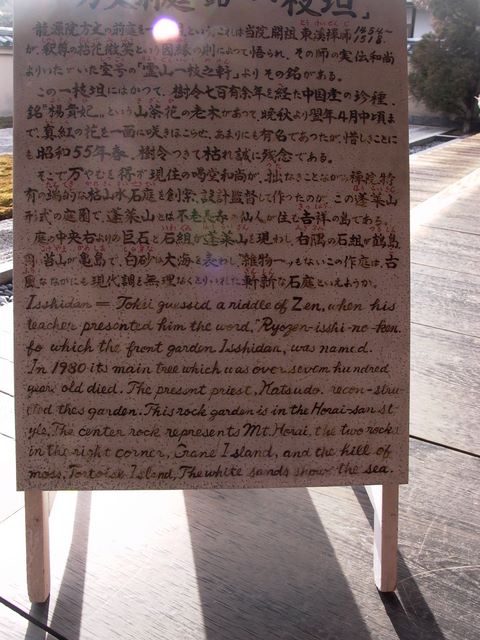 方丈前庭 銘「一枝坦」
龍源院方丈の前庭を一枝坦という。これは当院開祖東溪禅師 1454~1518.
が、釈尊の拈花微笑という因縁の則によって悟られ、その師の実伝和尚
よりいただいた室号の「霊山一枝之軒」よりその銘がある。
この一枝坦にはかつて、樹令七百有余年を経た中国産の珍種、
銘"楊貴妃"という山茶花の老木があって、晩秋より翌年4月中頃ま
で、真紅の花を一面に咲きほこらせ、あまりにも有名であったが、惜しきことに
も昭和55年春、樹令つきて枯れ誠に残念である。
そこで万やむを得ず現住の喝堂和尚が、拙なきことながら禅院特
有の端的な枯山水石庭を創案、設計監督して作ったのが、この蓬莱山
形式の庭園で、蓬莱山とは不老長寿の仙人が住む吉祥の島である。
庭の中央右よりの巨石と石組が蓬莱山を現わし、右隅の石組が鶴島
円い苔山が亀島で、白砂は大海を表わし、"雑物一つもないこの作庭は、古
風なながらにも現代調と無理なくとりいれた斬新な石庭といえようか。
Isshidan = Tokei guessed a riddle of Zen, when his
teacher presented him the word, "Ryozen-isshi-no-ken.
fo which the front garden Isshidan, was named.
In 1980 its main tree which was over sevem hundred
years old died. The present priest, Katsudo, recon-stru
cted thes garden. This rock garden is in the Horai-san st
yle. The center rock represents Mt. Horai, the two rocks
in the right corner, Crane Island, and the hill of
moss, Tortoise Island, The white sands show the sea.